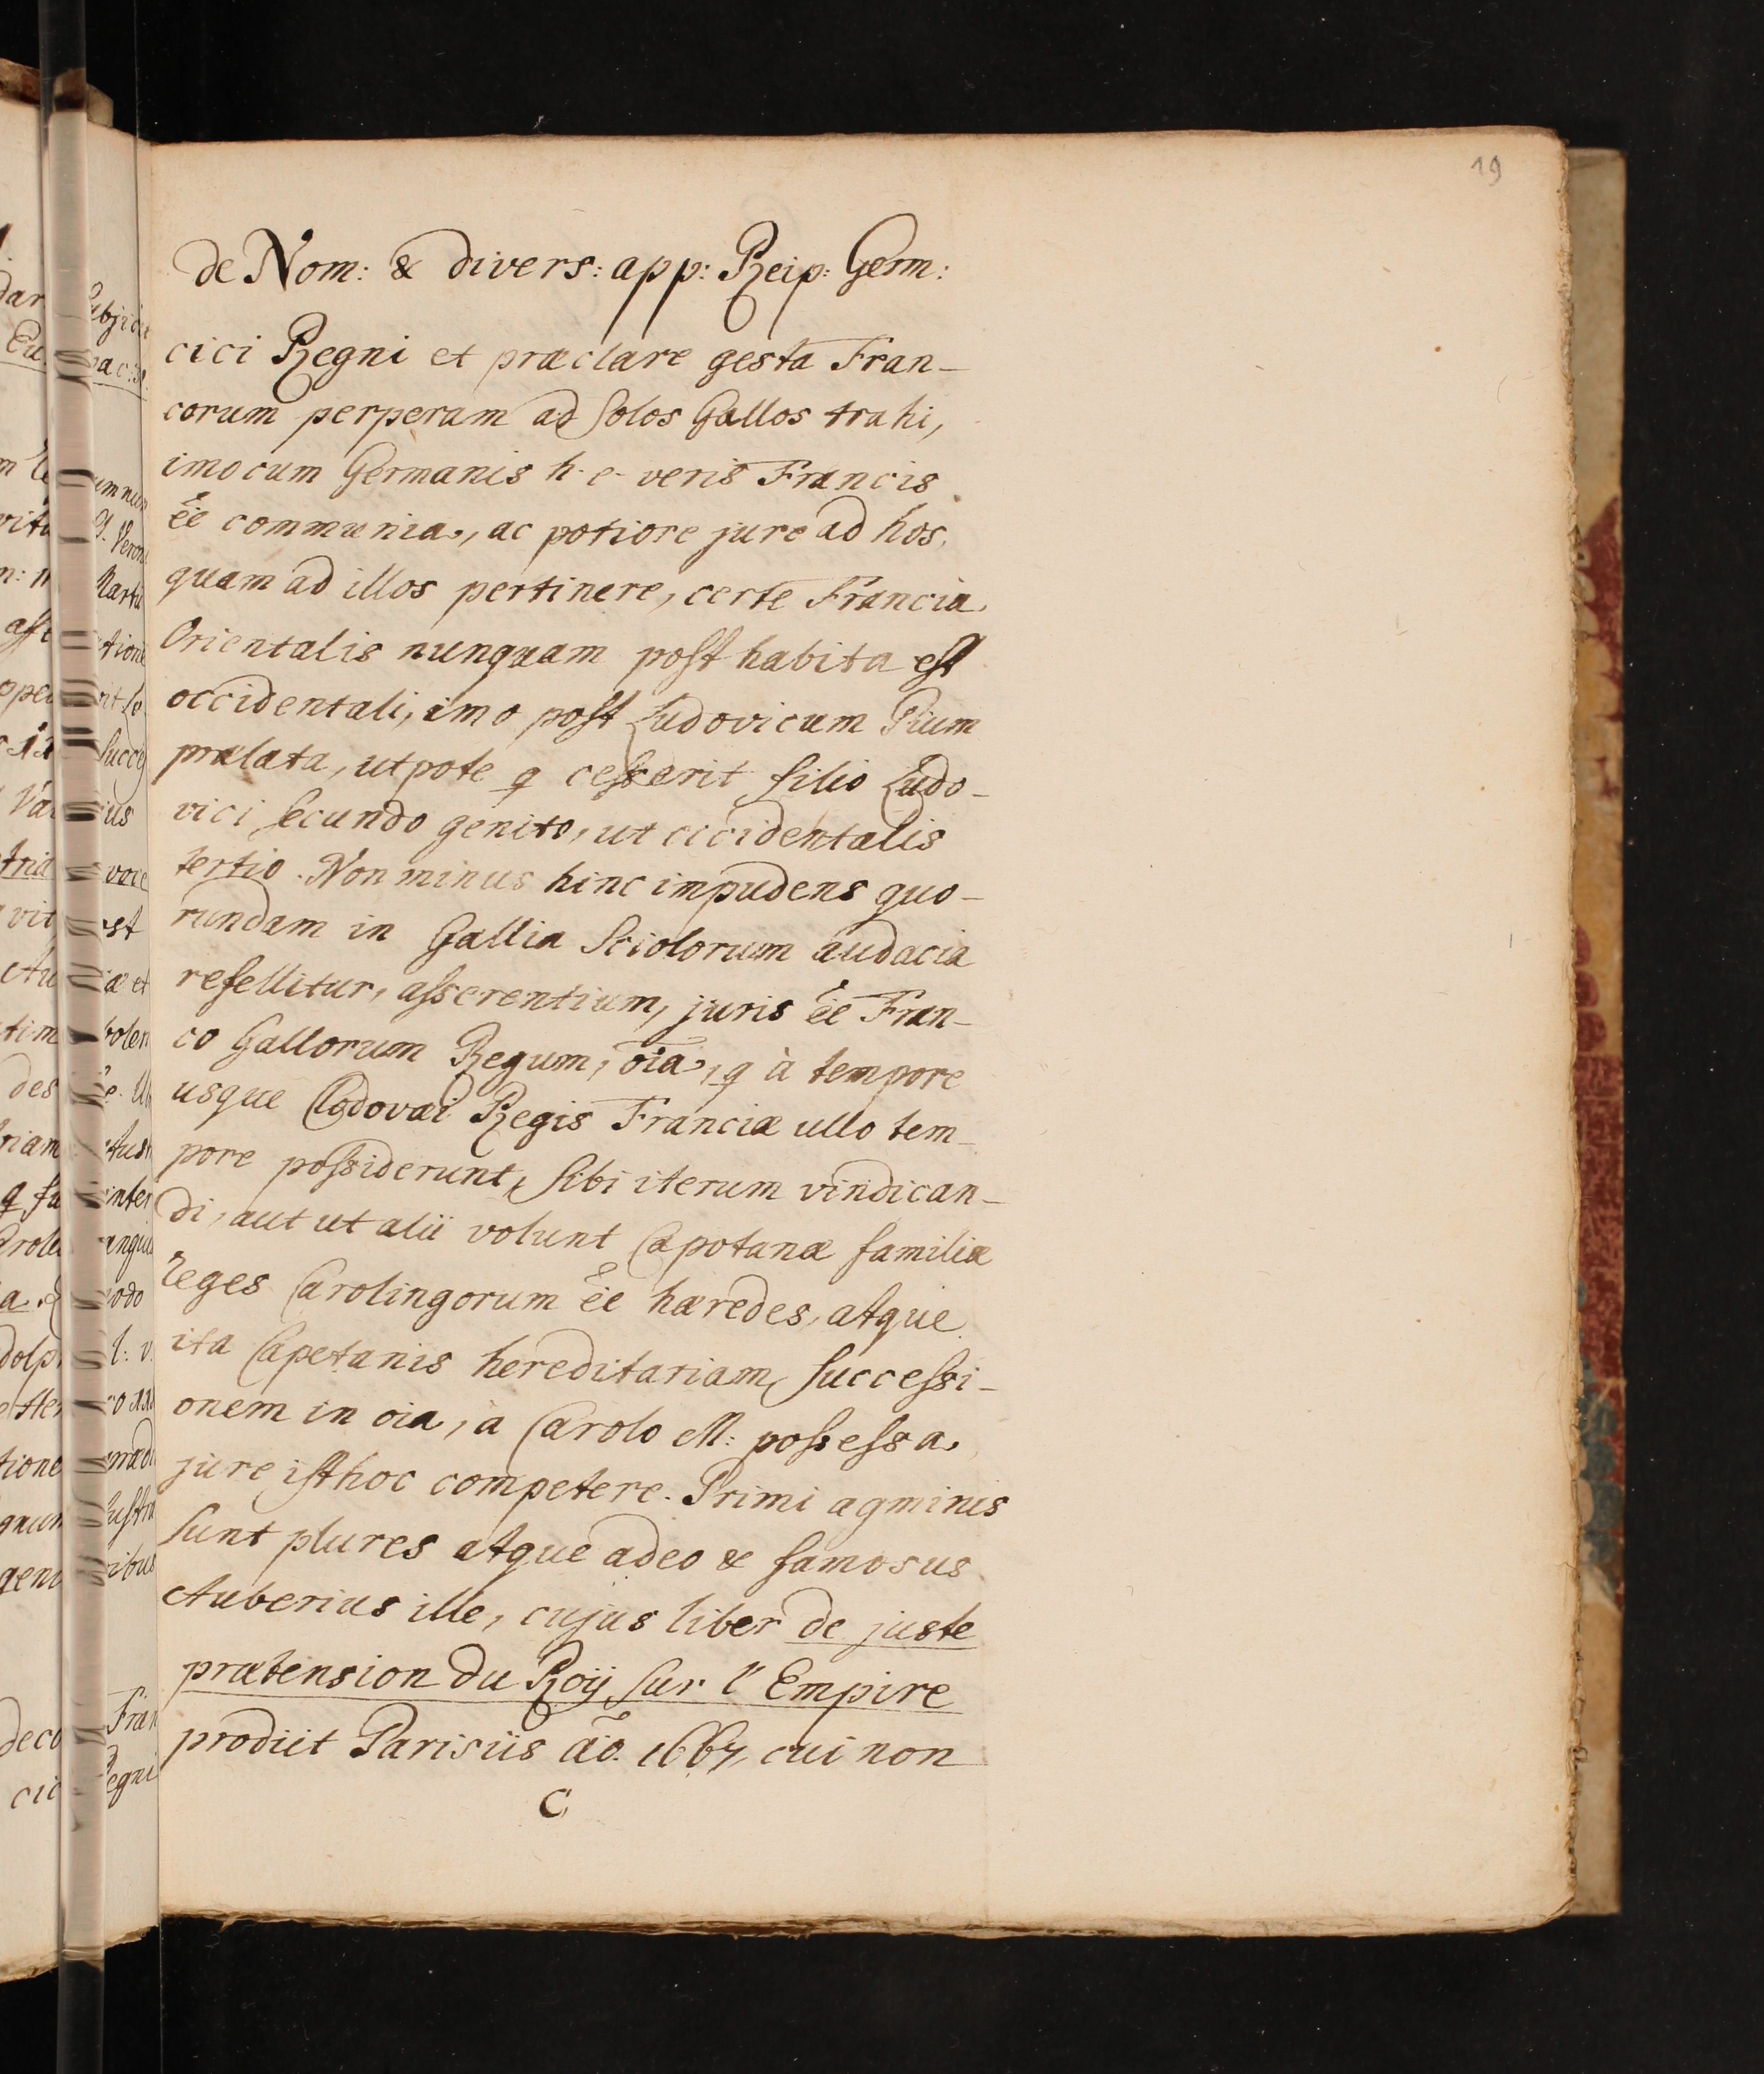 19
de Nom: & divers: app: Reip: Germ:
cici Regni et præclare gesta Fran-
corum perperam ad solos Gallos trahi,
imo cum Germanis h. e. veris Francis
ēe communia, ac potiore jure ad hos,
quam ad illos pertinere, certe Francia
Orientalis nunquam post habita est
occidentali, imo post Ludovicum Pium
prælata, utpote q cesserit filio Ludo-
vici secundo genito, ut cicidentalis
tertio. Non minus hinc impudens quo-
rundam in Gallia Sciolorum audacia
refellitur, asserentium, juris ēe Fran-
co Gallorum Regum, oīa, q à tempore
usque Clodovæi Regis Franciæ ullo tem-
pore possiderunt, sibi iterum vindican-
di, aut ut alii volunt Capotanæ familiæ
Reges Carolingorum ēe hæredes, atque
ita Capetanis hereditariam successi-
onem in oia, a Carolo M: possessa,
jure isthoc competere. Primi agminis
sunt plures atque adeo & famosus
Auberius ille, cujus liber de juste
prætension du Roÿ sur l'Empire
prodiit Parisiis aō. 1667, cui non
C